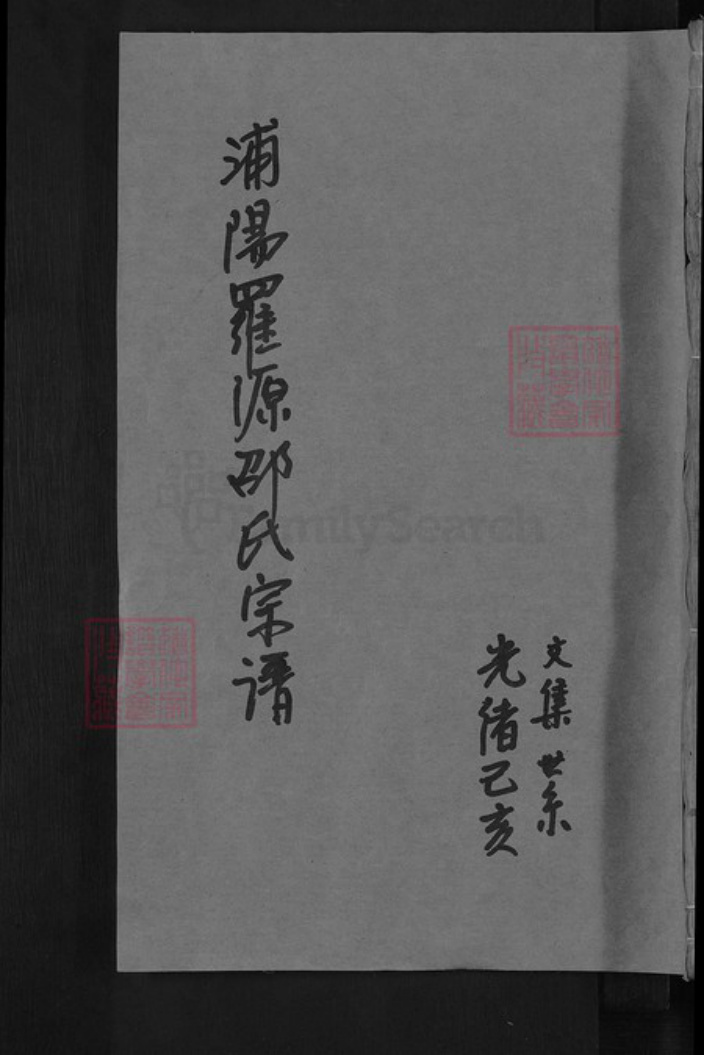 文集 世系
光緒己亥
浦陽羅源邵氏宗譜
FamilySearch